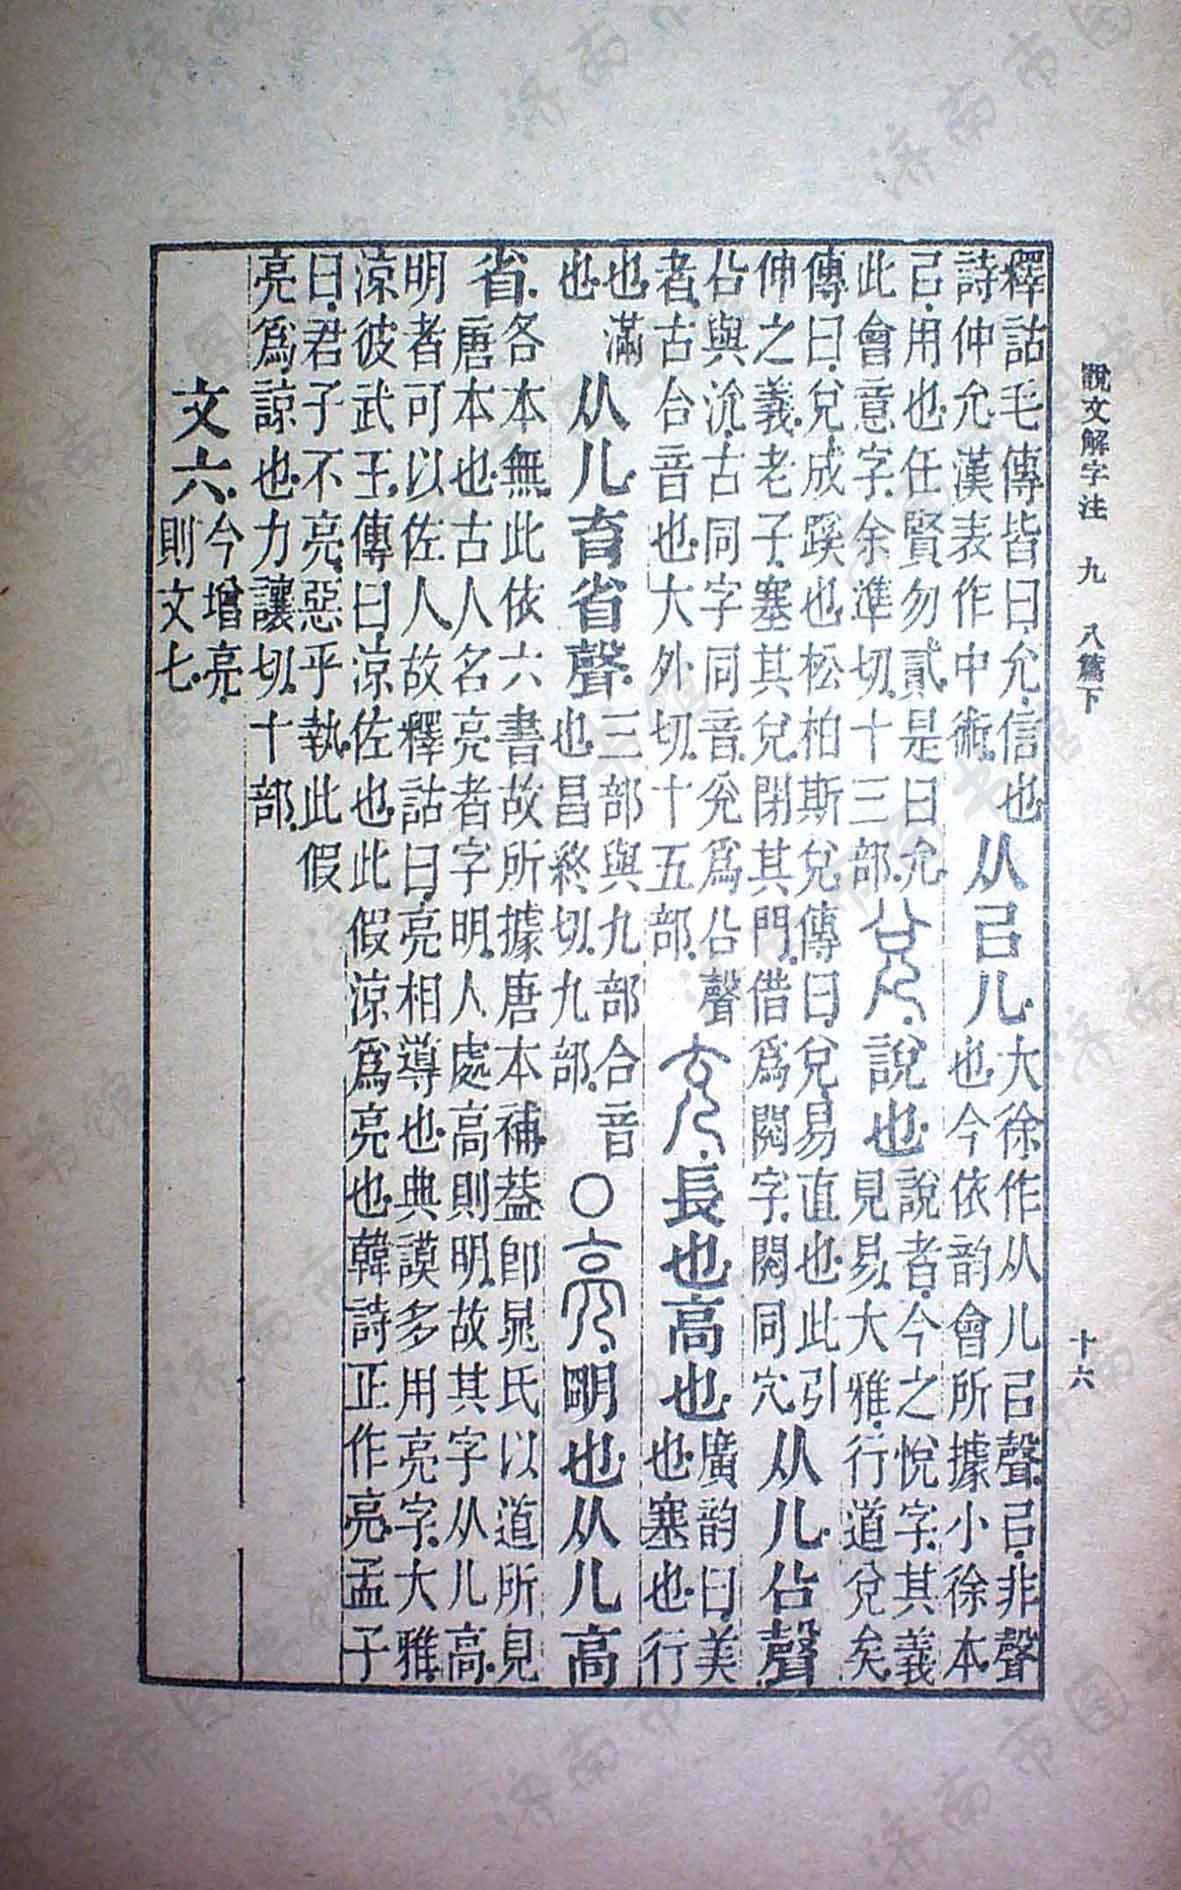 說文解字注 九 八篇下
十六
釋詁毛傳皆曰允信也
詩仲允漢表作中術
从㠯儿
大徐作从儿㠯聲㠯非聲
也今依韵會所據小徐本
㠯用也任賢勿貳是曰允
此會意字余準切十三部
兌說也
說者今之悅字其義
見易大雅行道兌矣
傳曰兌成蹊也松柏斯兌傳曰兌易直也此引
伸之義老子塞其兌閉其門借爲閱字閱同穴
从儿㕣聲
㕣與沇古同字同音兌爲㕣聲
者古合音也大外切十五部
充長也高也
廣韵曰美
也塞也行
也滿
也
从儿育省聲
三部與九部合音
也昌終切九部
○亮明也从儿高
省
各本無此依六書故所據唐本補葢卽晁氏以道所見
唐本也古人名亮者字明人處高則明故其字从儿高
明者可以佐人故釋詁曰亮相導也典謨多用亮字大雅
涼彼武王傳曰涼佐也此假涼爲亮也韓詩正作亮孟子
曰君子不亮惡乎執此假
亮爲諒也力讓切十部
文六
今增亮
則文七
济南市图书馆